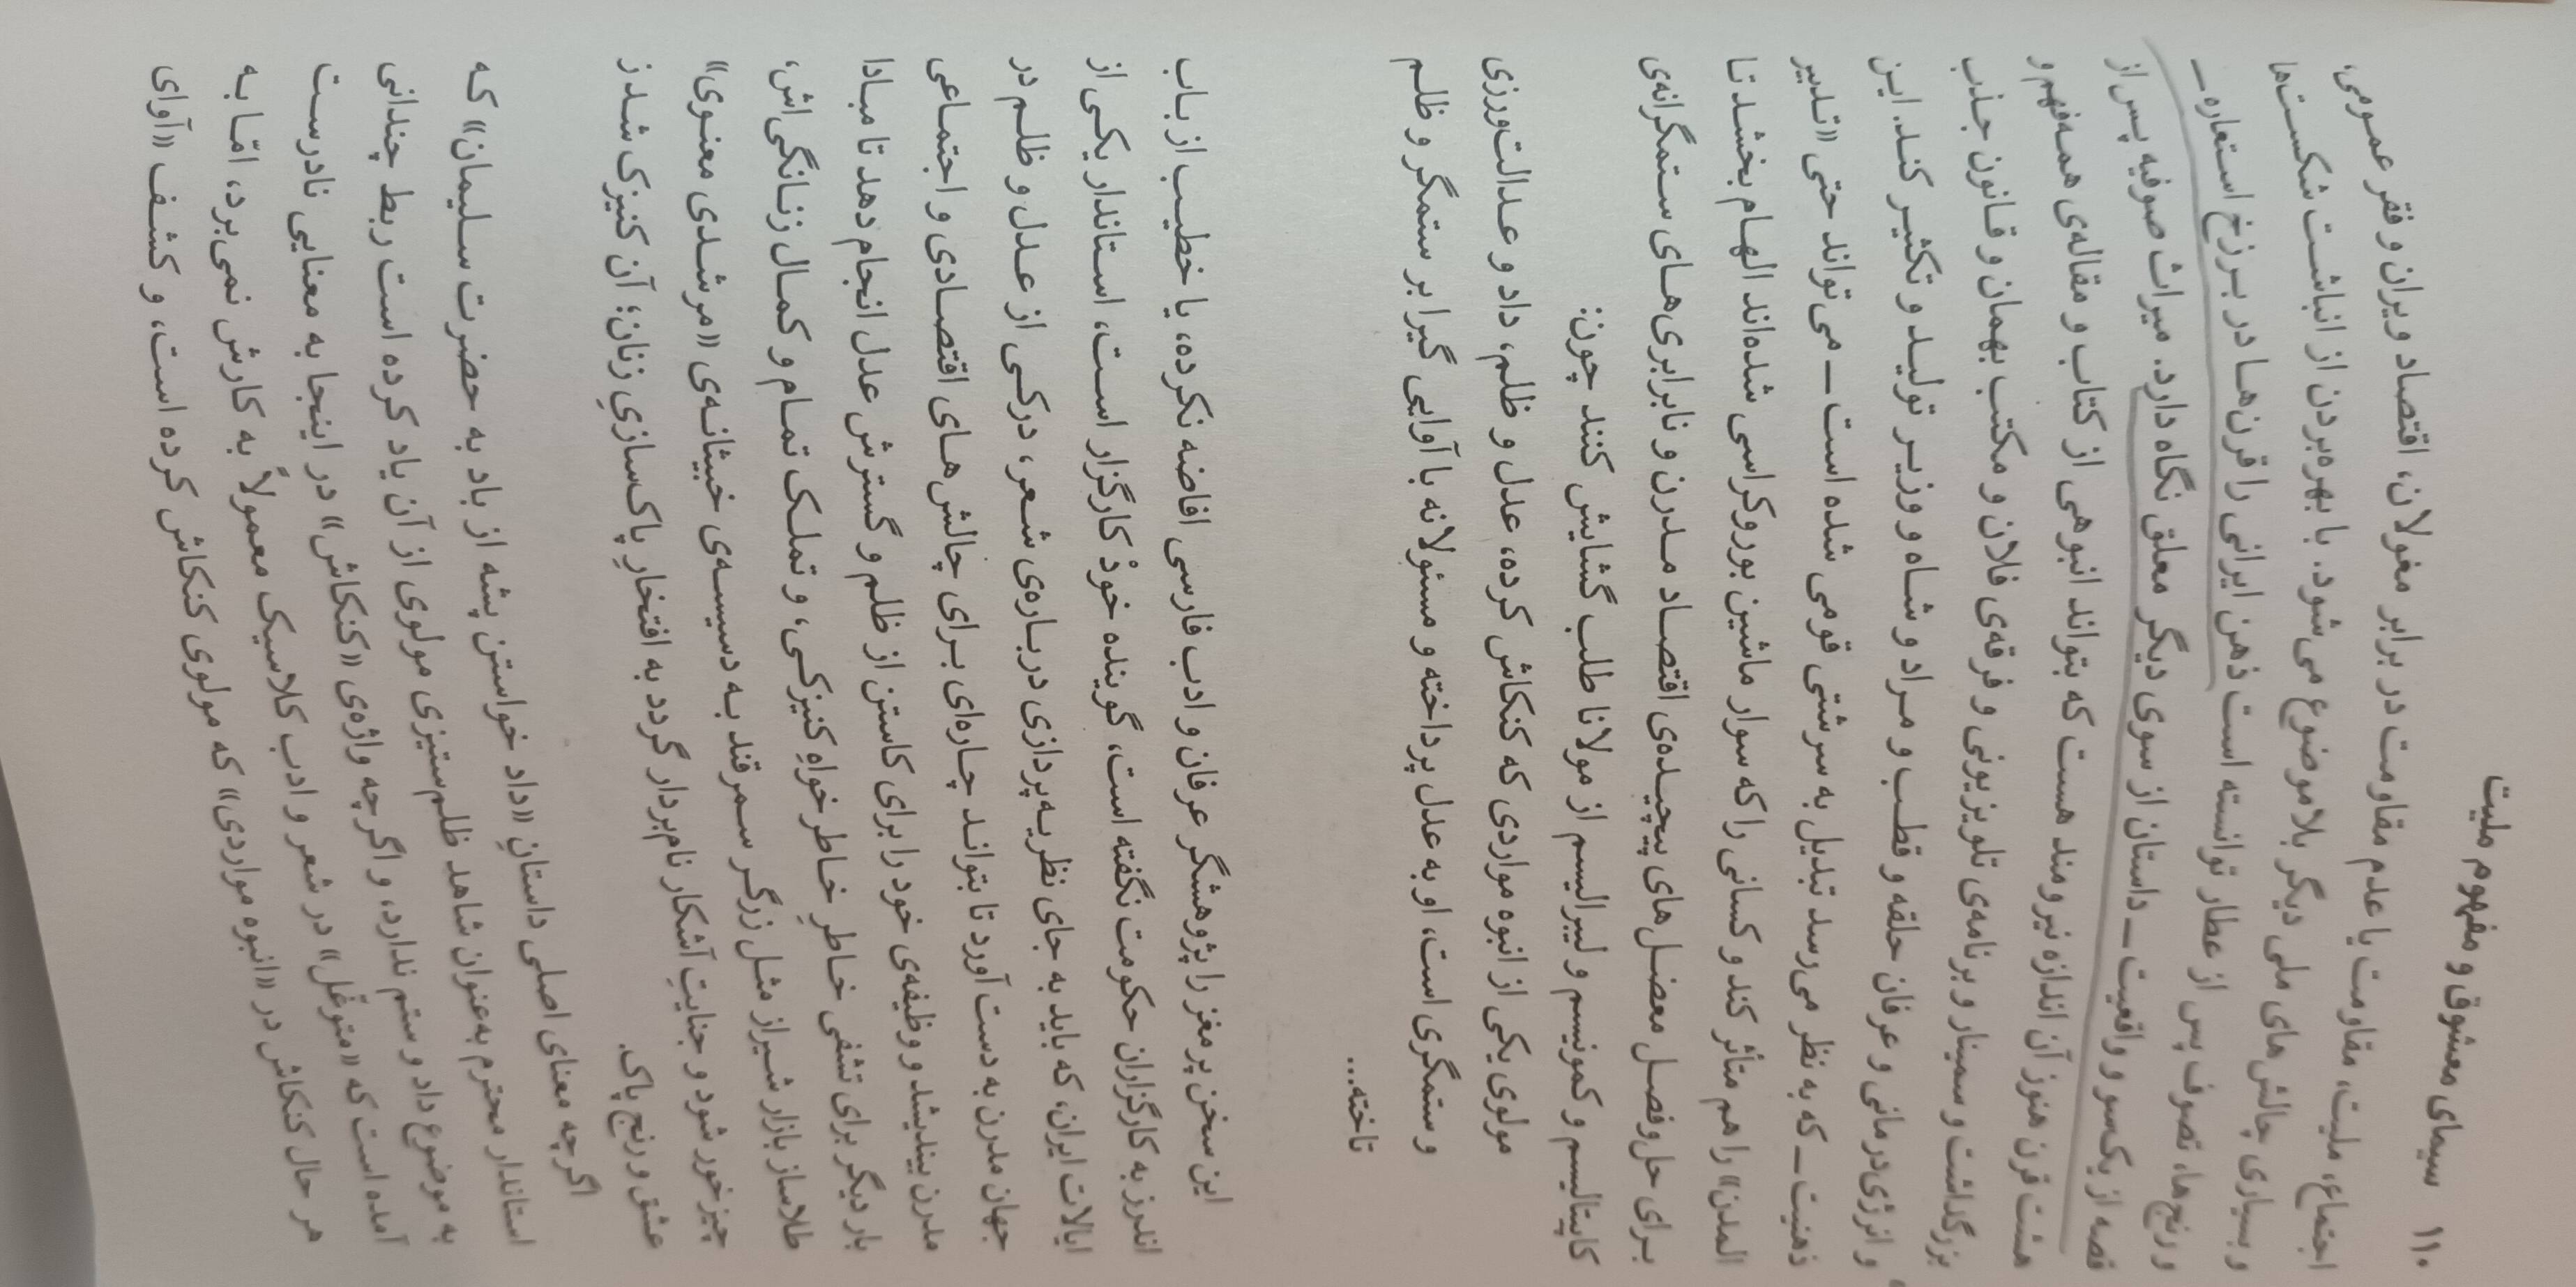 ۱۱۰ سیمای معشوق و مفهوم ملیت
اجتماع، ملیت، مقاومت یا عدم مقاومت در برابر مغولان، اقتصاد ویران و فقر عمومی،
و بسیاری چالش‌های ملی دیگر بلاموضوع می‌شود. با بهره‌بردن از انباشت شکست‌ها
و رنج‌ها، تصوف پس از عطار توانسته است ذهن ایرانی را قرن‌ها در برزخ استعاره ــ
قصه از یک‌سو و واقعیت ــ داستان از سوی دیگر معلق نگاه دارد. میراث صوفیه پس از
هشت قرن هنوز آن اندازه نیرومند هست که بتواند انبوهی از کتاب و مقاله‌ی همه‌فهم و
بزرگداشت و سمینار و برنامه‌ی تلویزیونی و فرقه‌ی فلان و مکتب بهمان و قانون جذب
و انرژی‌درمانی و عرفان حلقه و قطب و مراد و شاه و وزیر تولید و تکثیر کند. این
ذهنیت ــ که به نظر می‌رسد تبدیل به سرشتی قومی شده است ــ می‌تواند حتی «تدبیر
المدن» را هم متأثر کند و کسانی را که سوار ماشین بوروکراسی شده‌اند الهام بخشد تا
برای حل‌وفصل معضل‌های پیچیده‌ی اقتصاد مدرن و نابرابری‌های ستمگرانه‌ی
کاپیتالیسم و کمونیسم و لیبرالیسم از مولانا طلب گشایش کنند چون:
مولوی یکی از انبوه مواردی که کنکاش کرده، عدل و ظلم، داد و عدالت‌ورزی
و ستمگری است، او به عدل پرداخته و مسئولانه با آوایی گیرا بر ستمگر و ظلم
تاخته...
این سخن پرمغز را پژوهشگر عرفان و ادب فارسی افاضه نکرده، یا خطیب از باب
اندرز به کارگزاران حکومت نگفته است، گوینده خودْ کارگزار است، استاندار یکی از
ایالات ایران، که باید به جای نظریه‌پردازی درباره‌ی شعر، درکی از عدل و ظلم در
جهان مدرن به دست آورد تا بتواند چاره‌ای برای چالش‌های اقتصادی و اجتماعی
مدرن بیندیشد و وظیفه‌ی خود را برای کاستن از ظلم و گسترش عدل انجام دهد تا مبادا
بار دیگر برای تشفی خاطرِ خاطرخواهِ کنیزکی، و تملک تمام و کمال زنانگی‌اش،
طلاساز بازار شیراز مثل زرگر سمرقند به دسیسه‌ی خبیثانه‌ی «مرشدی معنوی»
چیزخور شود و جنایتِ آشکار نام‌بردار گردد به افتخارِ پاک‌سازیِ زنان؛ آن کنیزک شد ز
عشق و رنج پاک.
اگرچه معنای اصلی داستانِ «داد خواستن پشه از باد به حضرت سلیمان» که
استاندار محترم به‌عنوان شاهد ظلم‌ستیزی مولوی از آن یاد کرده است ربط چندانی
به موضوع داد و ستم ندارد، و اگرچه واژه‌ی «کنکاش» در اینجا به معنایی نادرست
آمده است که «متوغّل» در شعر و ادب کلاسیک معمولاً به کارش نمی‌برد، امّا به
هر حال کنکاش در «انبوه مواردی» که مولوی کنکاش کرده است، و کشف «آوای